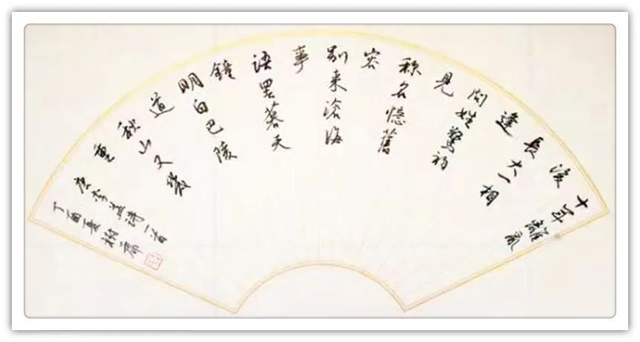 十年離亂
後
長大一相
逢
問姓驚初
見
稱名憶舊
容
別來滄海
事
語罷暮天
鐘
明日巴陵
道
秋山又幾
重
唐李益詩一首
丁酉夏